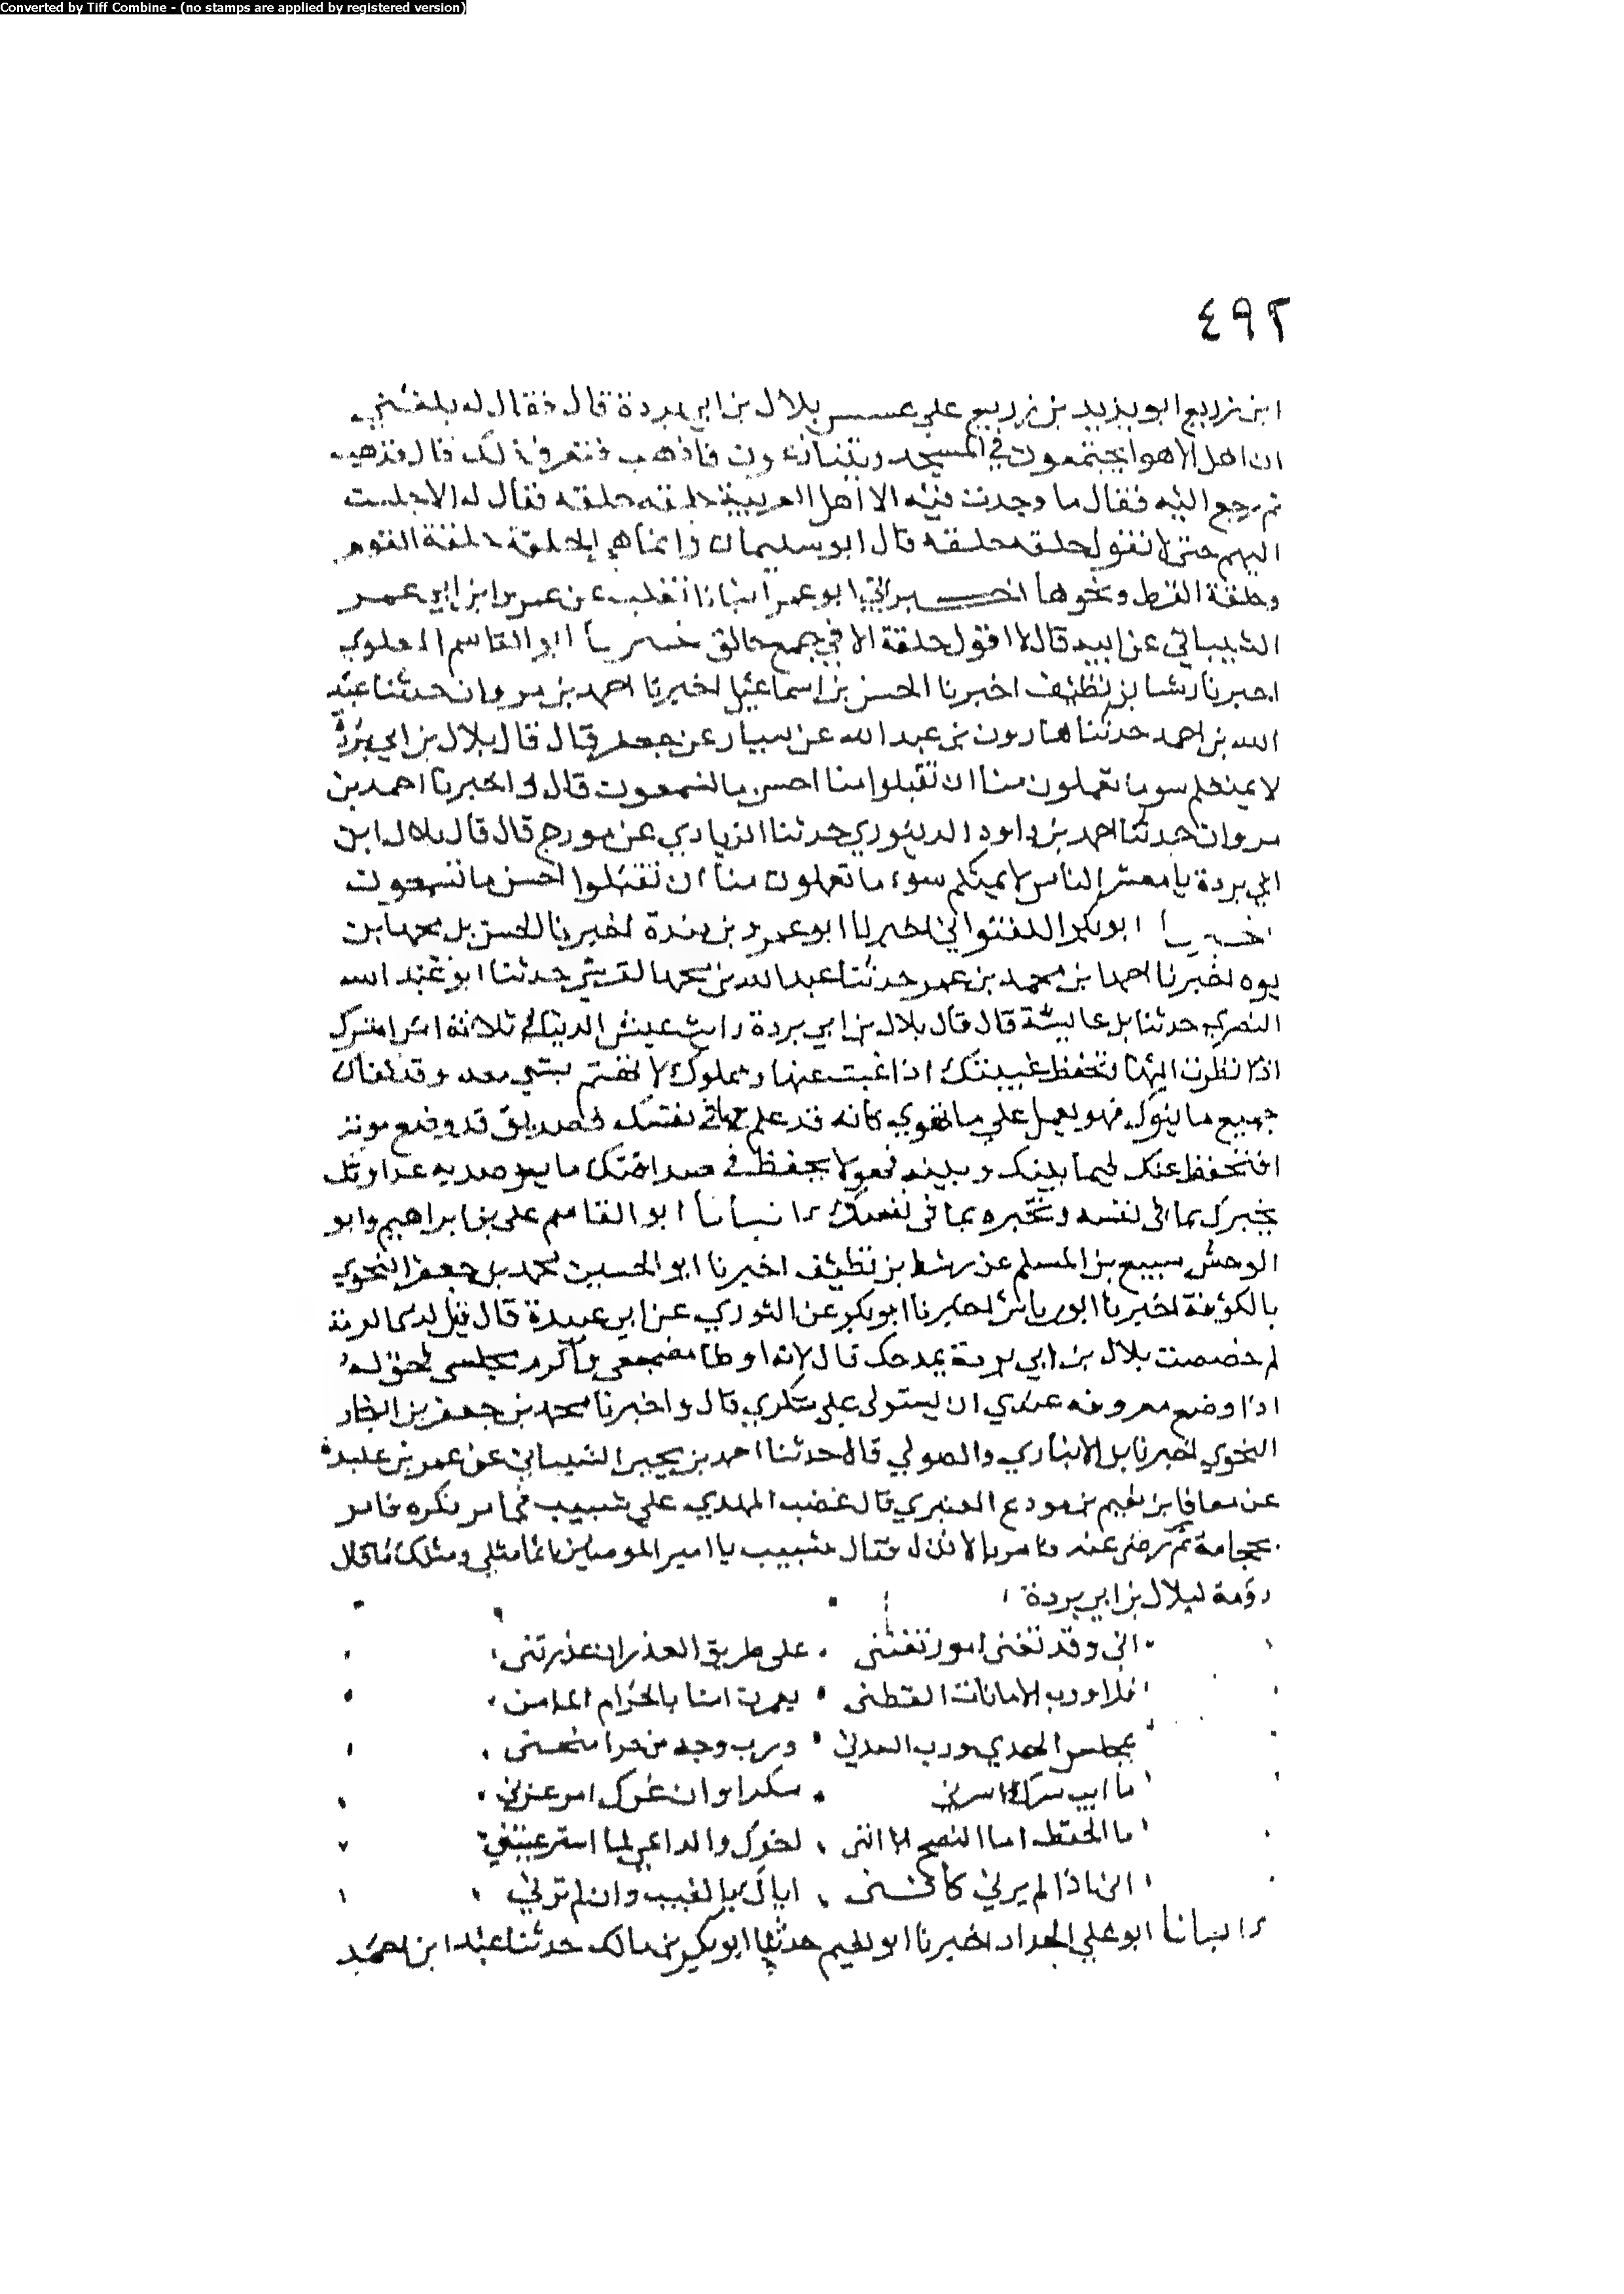 Converted by Tiff Combine - (no stamps are applied by registered version)
٤٩٢
ابن زريع ابو يزيد بن زريع علي عسس بلال بن ابي بردة قال فقال له بلغني
ان اهل الاهوا يجتمعون في المسجد ويتنازعون فاذهب فتعرف ذلك قال فذهب
ثم رجع اليه فقال ما وجدت فيه الا اهل العربية حلقه حلقه فقال له الا جلست
اليهم حتى لا نقول حلقه حلقه قال ابو سليمان وانما هي الحلقة حلقة القوم
وحلقة القرط ونحوها اخبرني ابو عمر انبانا ثعلب عن عمرو بن ابي عمر
الشيباني عن ابيه قال لا اقول حلقة الا في جمع حالق اخبرنا ابو القاسم العلوي
اخبرنا رشا بن نظيف اخبرنا الحسن بن اسماعيل اخبرنا احمد بن مروان حدثنا عبد
الله بن احمد حدثنا هارون بن عبد الله عن سيار عن جعفر قال قال بلال بن ابي بردة
لا يمنعكم سو ما تعملون منا ان تقبلوا منا احسن ما تسمعون قال و اخبرنا احمد بن
مروان حدثنا احمد بن داود الدينوري حدثنا الزيادي عن مورج قال قال بلال ابن
ابي بردة يا معشر الناس لا يمنعكم سوء ما تعملون منا ان تقبلوا احسن ما تسمعون
اخبرنا ابو بكر اللفتواني اخبرنا ابو عمرو بن مندة اخبرنا الحسن بن محمد بن
يوه اخبرنا احمد بن محمد بن عمر حدثنا عبد الله بن محمد القرشي حدثنا ابو عبد الله
البصري حدثنا بن عايشة قال قال بلال بن ابي بردة رايت عيش الدنيا في ثلاثة امراة تسرك
اذا نظرت اليها تحفظ غيبتك اذا غبت عنها ومملوك لا تهتم بشي معه وقد كفاك
جميع ما ينوبك فهو يعمل علي ما تهوي كانه قد علم ما في نفسك وصديق قد وضع مونة
التحفظ عنك فيما بينك وبينه فهو لا يحفظ في صداقتك ما يرصد به عداوتك
يخبرك بما في نفسه وتخبره بما في نفسك انبانا ابو القاسم علي بن ابراهيم وابو
الوحش سبيع بن المسلم عن رشا بن نظيف اخبرنا ابو الحسين محمد بن جعفر النحوي
بالكوفة اخبرنا ابو رياش اخبرنا ابو بكر عن الثوري عن ابي عبيدة قال قيل لذي الرمة
لم خصصت بلال بن ابي بردة بمدحك قال لانه اوطا مضجعي واكرم مجلسي فحق له
اذا وضع معروفه عندي ان يستولي علي شكري قال و اخبرنا محمد بن جعفر بن النجار
النحوي اخبرنا بن الانباري والصولي قالا حدثنا احمد بن يحيى الشيباني عن عمر بن عبيدة
عن معافا بن نعيم بن مودع العنبري قال غضب المهدي علي شبيب في امر نكره فامر
بحجامة ثم رضي عنه فامر بالاذن له فقال شبيب يا امير المومنين انما مثلي ومثلك كما قال
رؤبة لبلال بن ابي بردة
اني وقد تعنى امور تعتني على طريق العذر ان عذرتني
فلا ورب الامانات القطني يعمرن امنا بالحرام المامن
بمجلس الهدي ورب المدني ورب وجه من حرا منحني
ما ايب سرك الا سرني شكرا وان غرك امر عزني
ما الحفظ اما النصح الا انني اخوك والراعي لما استرعيتني
اني اذا لم يرني كانني اراك بالغيب وان لم ترني
انبانا ابو علي الحداد اخبرنا ابو نعيم حدثنا ابو بكر بن مالك حدثنا عبد ابن احمد